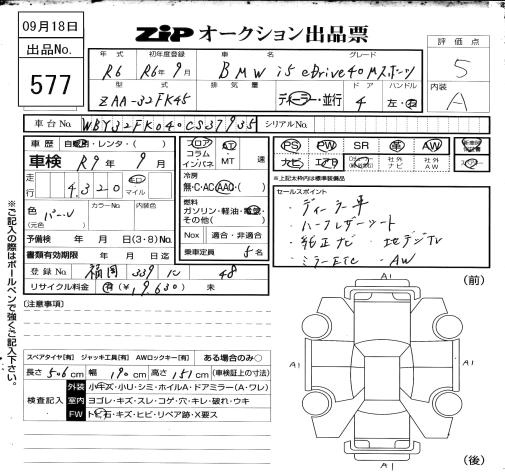 09月18日
出品No.
577
ZIP オークション出品票
年式 初年度登録 車名 グレード
R6 R6年9月 BMW i5 eDrive40 Mスポーツ
型式 排気量 ドア ハンドル
ZAA-32FK45 ディーラー・並行 4 左・右
評価点
5
内装
A
車台No. WBY32FK040CS37935 シリアルNo.
車歴 自家用・レンタ・( )
車検 R9年9月
走行 4,320 キロ マイル
色 パール (元色)
カラーNo. 内装色
予備検 年 月 日(3・8)No.
書類有効期限 年 月 日迄
登録No. 福岡 339 に 48
リサイクル料金 有(¥19,630) 未
フロア コラム インパネ
AT ・ MT 速
冷房
無・C・AC・AAC・( )
燃料
ガソリン・軽油・電気・その他( )
Nox 適合・非適合
乗車定員 5名
PS PW SR 革 AW
ナビ エアB 社外ナビ 社外AW
※上記太枠内は標準装備品
セールスポイント
・ディーラー車
・ハーフレザーシート
・純正ナビ ・地デジTV
・ミラーETC ・AW
[注意事項]
※ご記入の際はボールペンで強くご記入下さい。
スペアタイヤ[有] ジャッキ工具[有] AWロックキー[有] ある場合のみ○
長さ506cm 幅190cm 高さ151cm (車検証上の寸法)
検査記入
外装 小キズ・小U・シミ・ホイルA・ドアミラー(A・ワレ)
室内 ヨゴレ・キズ・スレ・コゲ・穴・キレ・破れ・ウキ
FW トビ石・キズ・ヒビ・リペア跡・X要ス
(前)
A1
A1
A1
A1
(後)